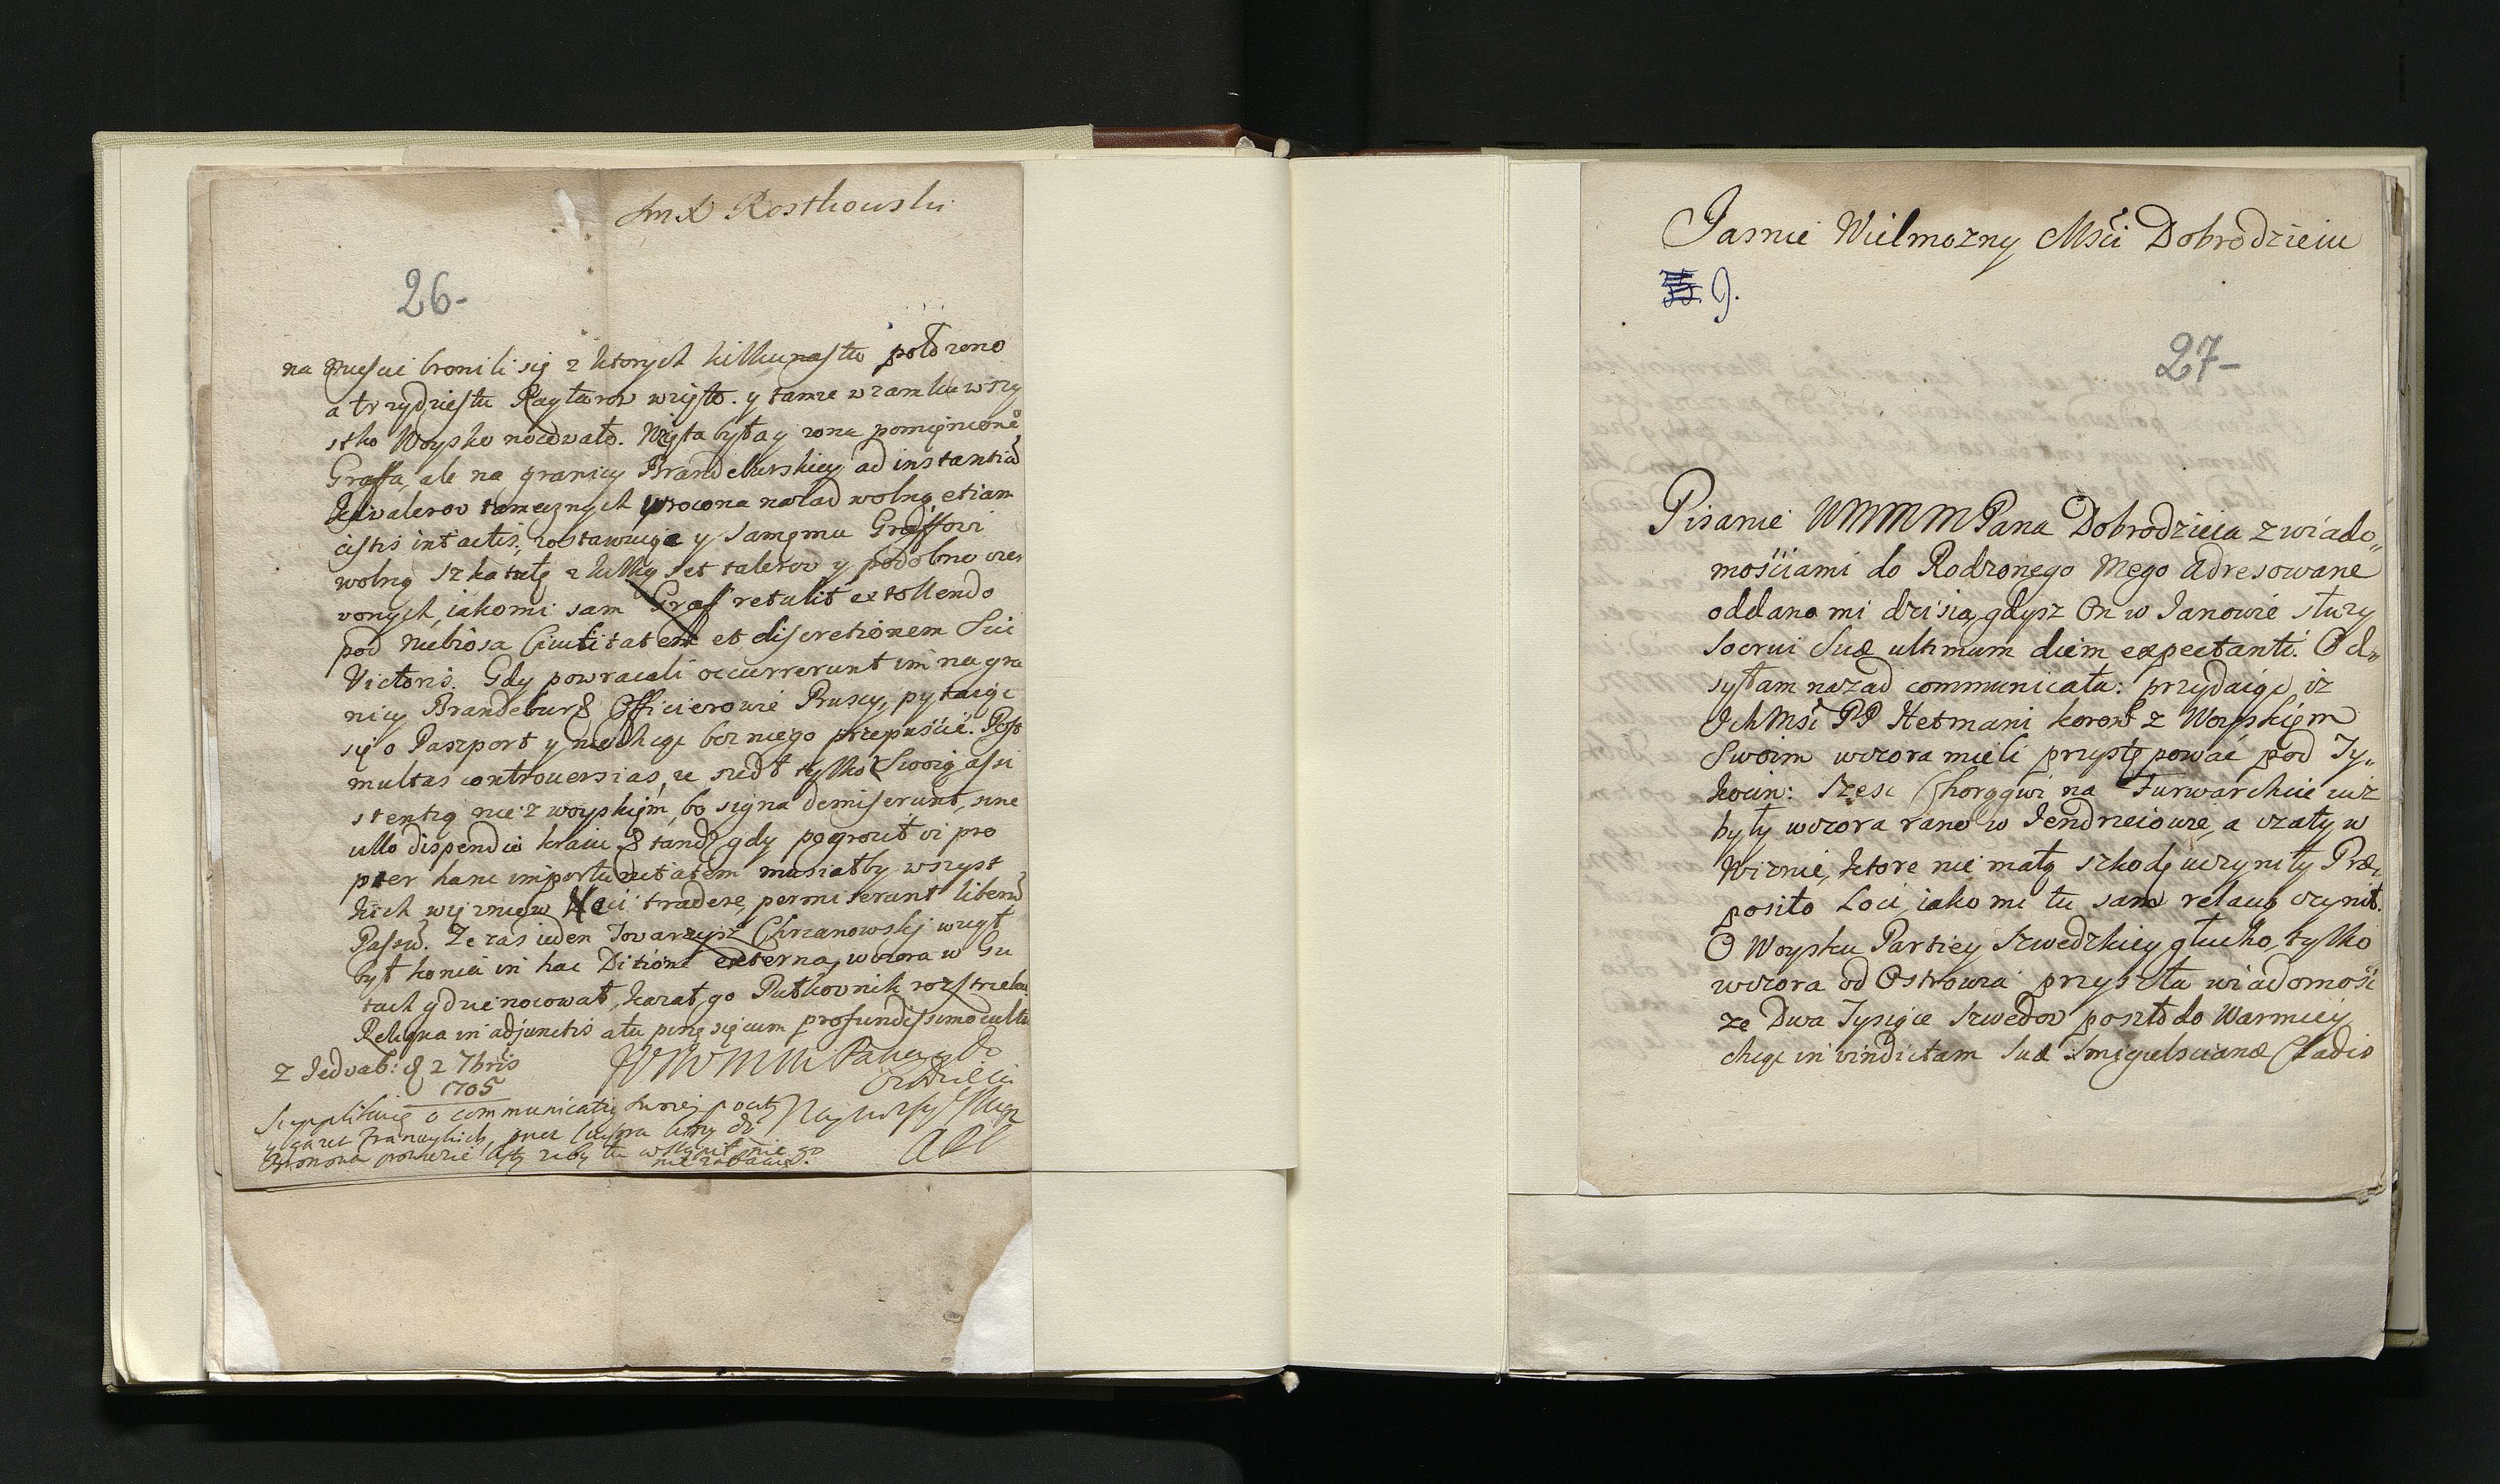 Rostkowski
26-
na moscie bronili się z ktorych kilkunastu połozono
a trzydziestu Raytarow wzięto. y tamze w zamku wszy
stko Woysko nocowało. Wzięta była y zona pomięnione
Graffa, ale na granicy Brandeburskiey ad instantia
Kawalerow tamecznych wrocona nazad wolno etiam
cistis intactis, zostawuiąc y samemu Graffowi
wolną szkatułę z kilką set talerow y podobno czer
wonych, iako mi sam Graf retulit extollendo
pod niebiosa Civilitatem et discretionem Sui
Victoris. Gdy powracali occurrerunt im na gra
nicy Brandeburg Officierowie Pruscy, pytaiąc
się o Paszport y niechcąc bez niego przepuścić. Post
multas controversias, ze szedł tylko z Swoią assi
stentią nie z woyskiem, bo signa demiserunt, sine
ullo dispendio kraiu & tand gdy pogroził, ze pro
pter hanc importunitatem musiałby wszyst
kich więzniow neci tradere, permiserunt liberu
Passu. Ze zas ieden Towarzysz Chrzanowskj wziął
był konia in hac Ditione externa, wczora w Gu
tach gdzie nocował, kazał go Pułkownik rozstrzelac
Reliqua in adjunctis a tu piszę się cum profundissimo cultu
Z Jedvab: d 2 7bris
1705
WMMM Pana y Do
brodzieia
Supplikuię o communicatię swoiey poczty
Naynizszy Sługa
27-
Jasnie Wielmozny Mści Dobrodzieiu
9.
Pisanie WMMM Pana Dobrodzieia z wiado„
mościami do Rodzonego Mego adresowane
oddano mi dzisia, gdysz On w Janowie słuzy
Socrui Suæ ultimum diem expectanti. Od„
syłam nazad communicata: przydaiąc iz
Ich Mści PP Hetmani koron z Woyskiem
Swoim wczora mieli przystępować pod Ty„
kocin: szesc Chorągwi na Furwarchcie iuz
były wczora rano w Jendrzeiowie, a czaty w
Wiznie, ktore nie małą szkodę uczyniły Præ„
posito Loci, iako mi tu sam relatią czynił.
O Woysku Partiey Szwedzkiey głucho, tylko
wczora od Ostrowia przyszła wiadomość
ze Dwa Tysiące Szwedow poszło do Warmiey
chcąc in vindictam suæ Smigielscianæ Cladis